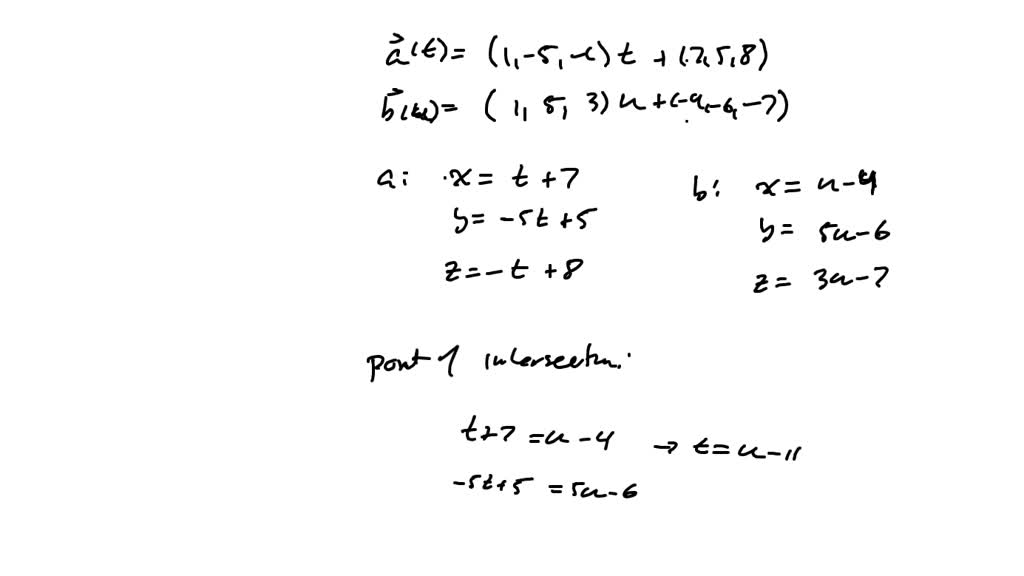 a⃗(t) = (1, -5, -1) t + (7, 5, 8)
b⃗(u) = (1, 5, 3) u + (-4, -6, -7)
a: x = t + 7
y = -5t + 5
z = -t + 8
b: x = u - 4
y = 5u - 6
z = 3u - 7
point of intersection:
t + 7 = u - 4 → t = u - 11
-5t + 5 = 5u - 6